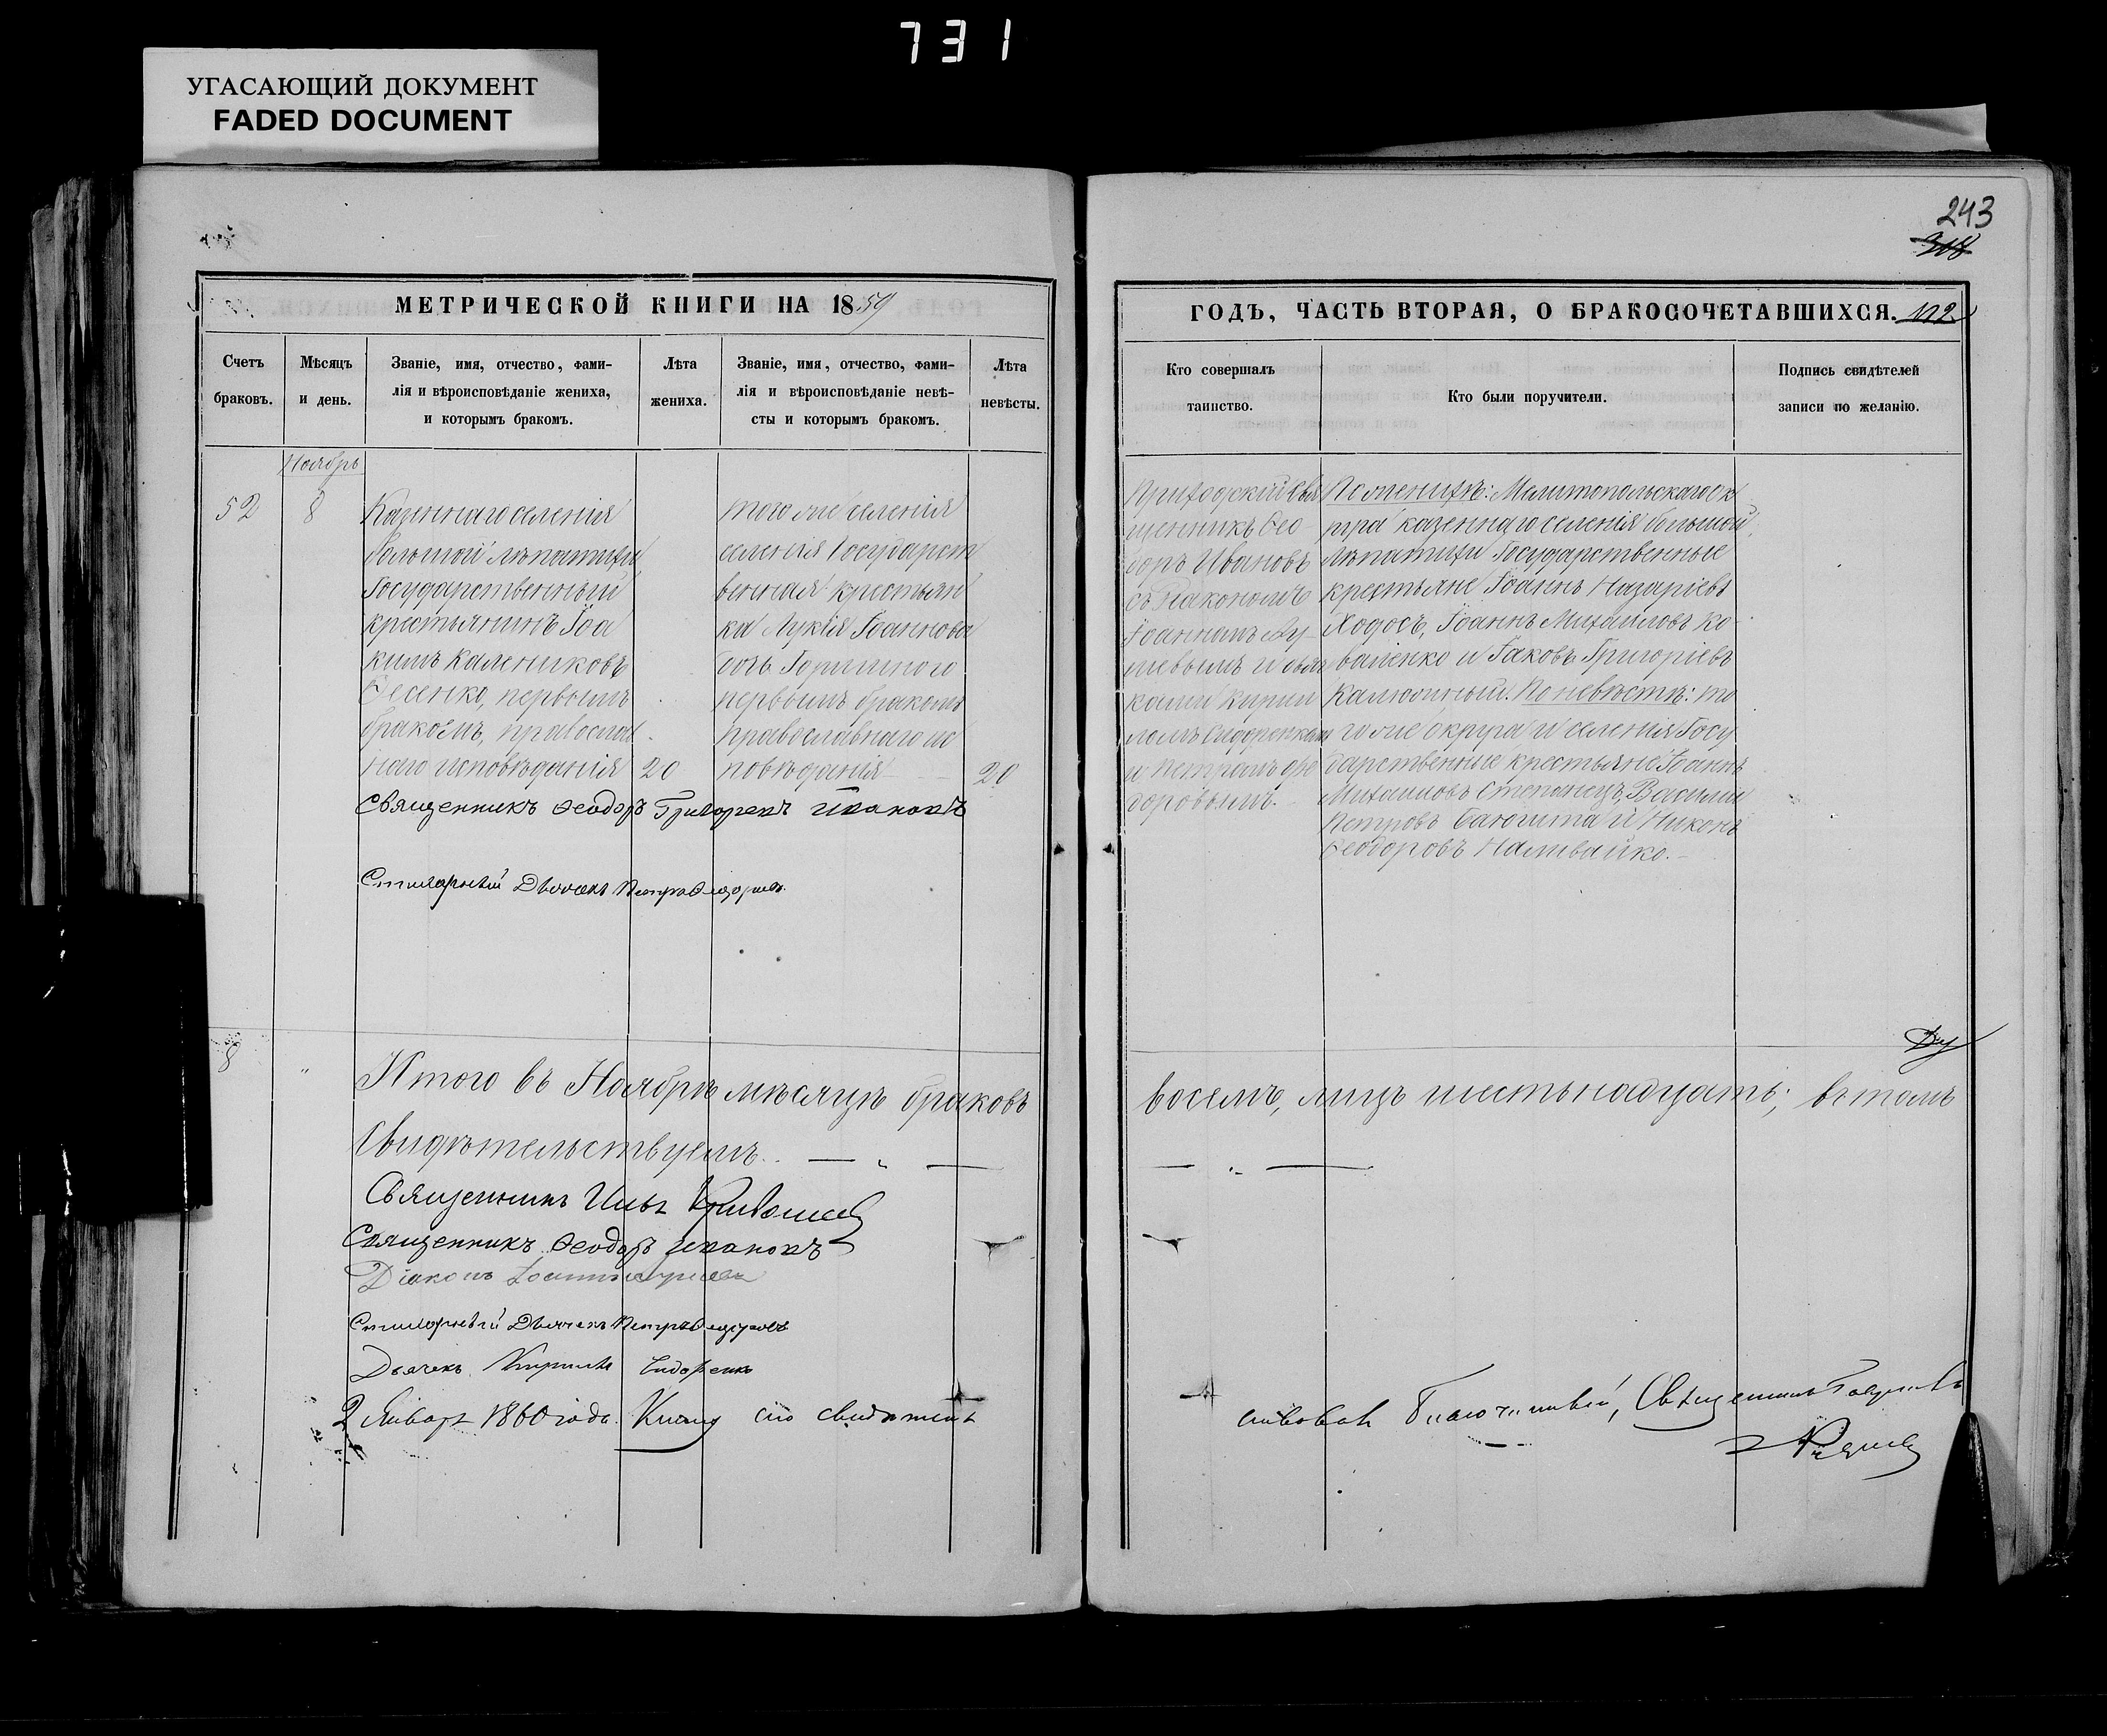 731
УГАСАЮЩИЙ ДОКУМЕНТ
FADED DOCUMENT
243
308
МЕТРИЧЕСКОЙ КНИГИ НА 1859
ГОДЪ, ЧАСТЬ ВТОРАЯ, О БРАКОСОЧЕТАВШИХСЯ. 112
Счетъ
браковъ.
Мѣсяцъ
и день.
Званіе, имя, отчество, фами-
лія и вѣроисповѣданіе жениха,
и которымъ бракомъ.
Лѣта
жениха.
Званіе, имя, отчество, фами-
лія и вѣроисповѣданіе невѣ-
сты и которымъ бракомъ.
Лѣта
невѣсты.
Кто совершалъ
таинство.
Кто были поручители.
Подпись свидѣтелей
записи по желанію.
Ноябрь
52
8
Казеннаго селенія
большой Лѣпатихи
Государственный
крестьянинъ Іоа
кимъ Калениковъ
Ѳесенко, первымъ
бракомъ, православ
наго исповѣданія
20
того же селенія
селенія Государст
венная крестьян
ка Лукія Іоаннова
дочь
первымъ бракомъ
православнаго ис
повѣданія
20
Приходскій свя
щенникъ Ѳео
доръ Ивановъ
съ Діакономъ
Іоанномъ Лу-
шевымъ и дьяч
комъ Кирил
ломъ Сидоренкомъ
и Петромъ Ѳео
доровымъ.
По женихѣ: Мелитопольскаго ок
руга казеннаго селенія большой
Лѣпатихи Государственные
крестьяне Іоаннъ Назаріевъ
Ходосъ, Іоаннъ Михаиловъ Ко-
валенко и Іаковъ Григоріевъ
Калюжный. По невѣстѣ: то
го же округа и селенія Госу
дарственные крестьяне Іоаннъ
Михаиловъ Степанецъ, Василій
Петровъ и Никонъ
Ѳеодоровъ Наливайко.
Священникъ Ѳеодоръ Григорьевъ Ивановъ
Стихарный Дьячекъ Петръ Ѳедоровъ
8
Итого въ Ноябрѣ мѣсяцѣ браковъ
восемь, лицъ шестьнадцать; въ томъ
Свидѣтельствуемъ.
Священникъ Илья
Священникъ Ѳеодоръ Ивановъ
Діаконъ Іоаннъ
Стихарный Дьячекъ Петръ Ѳедоровъ
Дьячекъ Кирилъ Сидоренко
2 Января 1860 года. Книгу сію свидѣтель
ствовалъ Благочинный, Священникъ Гавріилъ